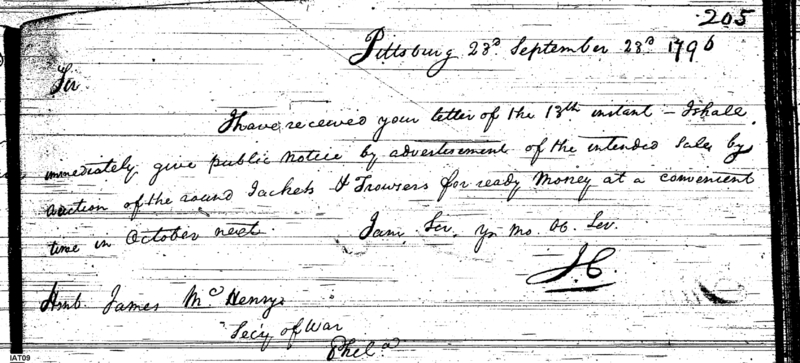 205
Pittsburg 23d September 23d 1796
Sir
I have received your letter of the 13th instant – I shall
immediately give public notice by advertisement of the intended Sales by
auction of the round Jackets & Trowsers for ready Money at a convenient
time in October next. I am Sir, yr. mo. ob. Ser.
J. C.
Honb. James McHenry
Secy of War
Phila
IAT09